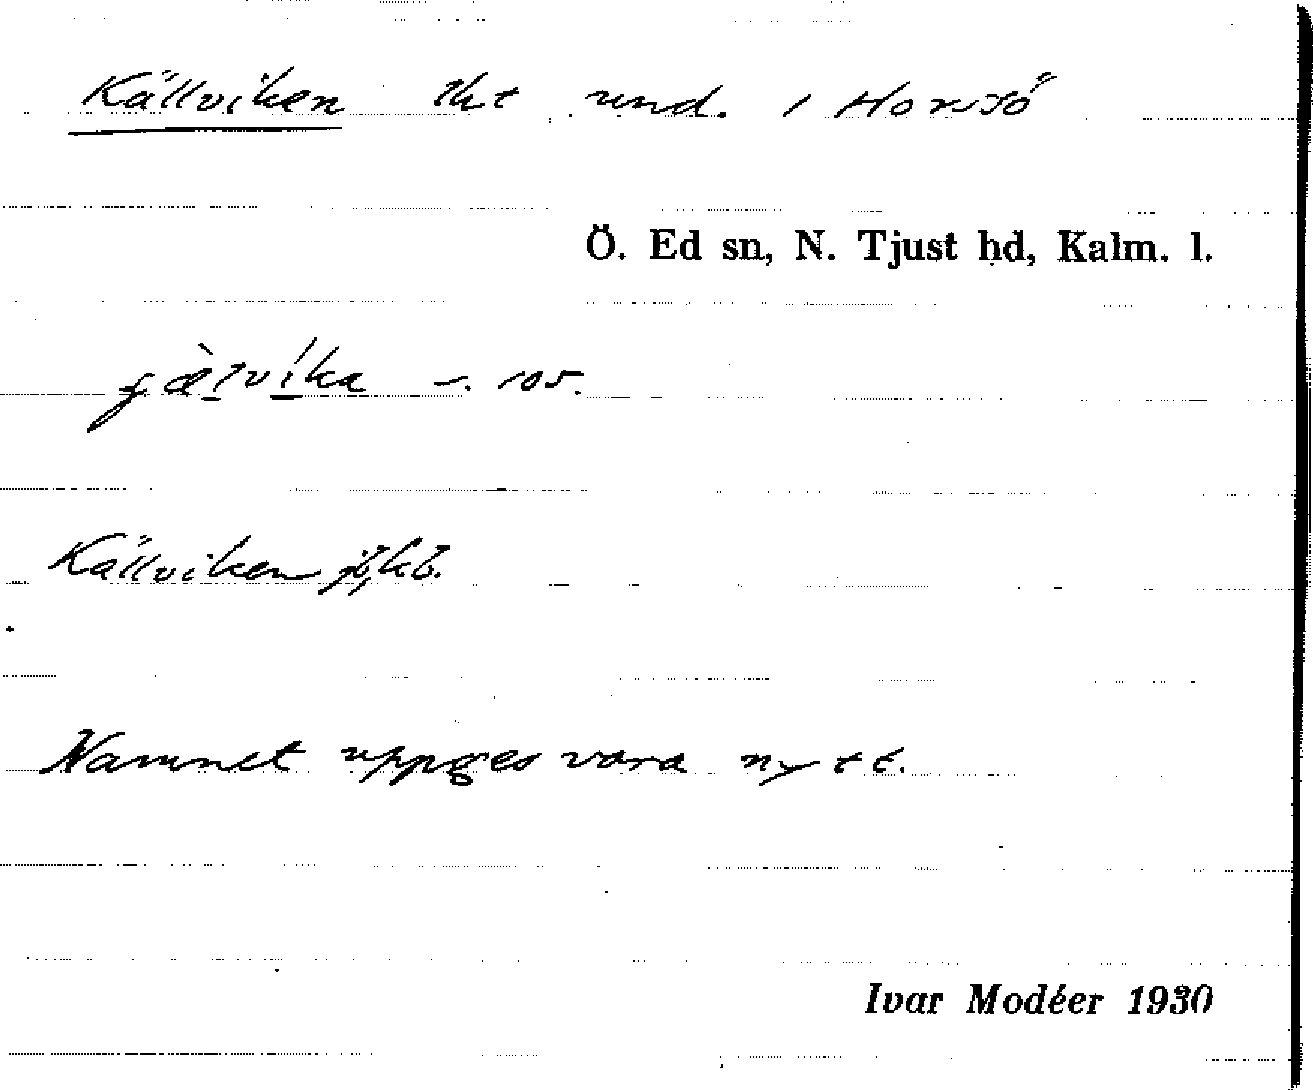 Källviken lht und. 1 Horsö
Ö. Ed sn, N. Tjust hd, Kalm. l.
–. 105.
Källviken jb, kb.
Namnet uppges vara nytt.
Ivar Modéer 1930